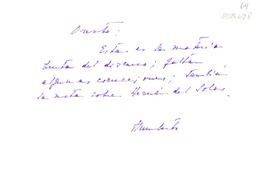 64
Oreste:
Esta es la materia
lenta del discurso; faltan
algunas correcciones; también
la nota sobre Hernán del Solar.
Humberto